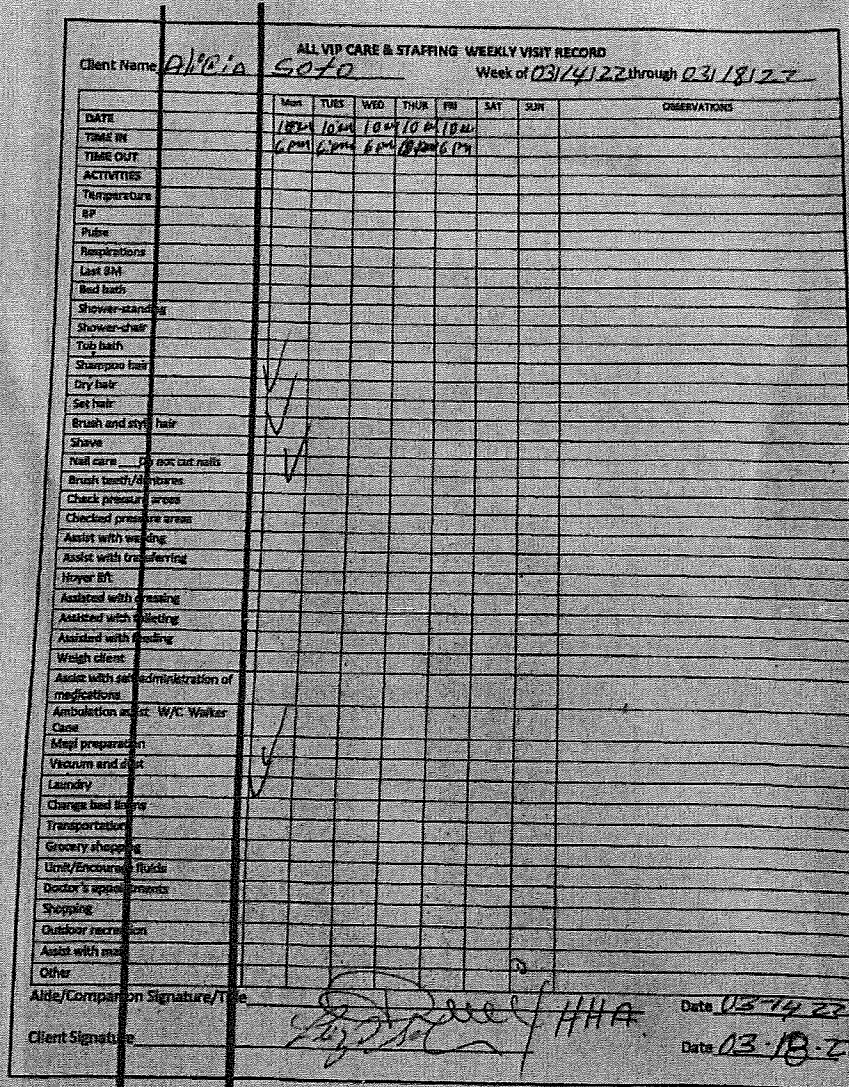 ALL VIP CARE & STAFFING WEEKLY VISIT RECORD
Client Name Alicia Soto Week of 03/14/22 through 03/18/22
Mon TUES WED THUR FRI SAT SUN OBSERVATIONS
DATE
TIME IN 10am 10am 10am 10am 10am
TIME OUT 6pm 6pm 6pm 6pm
ACTIVITIES
Temperature
BP
Pulse
Respirations
Last BM
Bed bath
Shower-standing
Shower-chair
Tub bath
Shampoo hair
Dry hair
Set hair
Brush and style hair
Shave
Nail care ___ Do not cut nails
Brush teeth/dentures
Check pressure areas
Checked pressure areas
Assist with walking
Assist with transferring
Hoyer lift
Assisted with dressing
Assisted with toileting
Assisted with feeding
Weigh client
Assist with self administration of
medications
Ambulation assist W/C Walker
Cane
Meal preparation
Vacuum and dust
Laundry
Change bed linens
Transportation
Grocery shopping
Limit/Encourage fluids
Doctor's appointments
Shopping
Outdoor recreation
Assist with mail
Other
Aide/Companion Signature/Title HHA Date 03-14-22
Client Signature Date 03-18-2